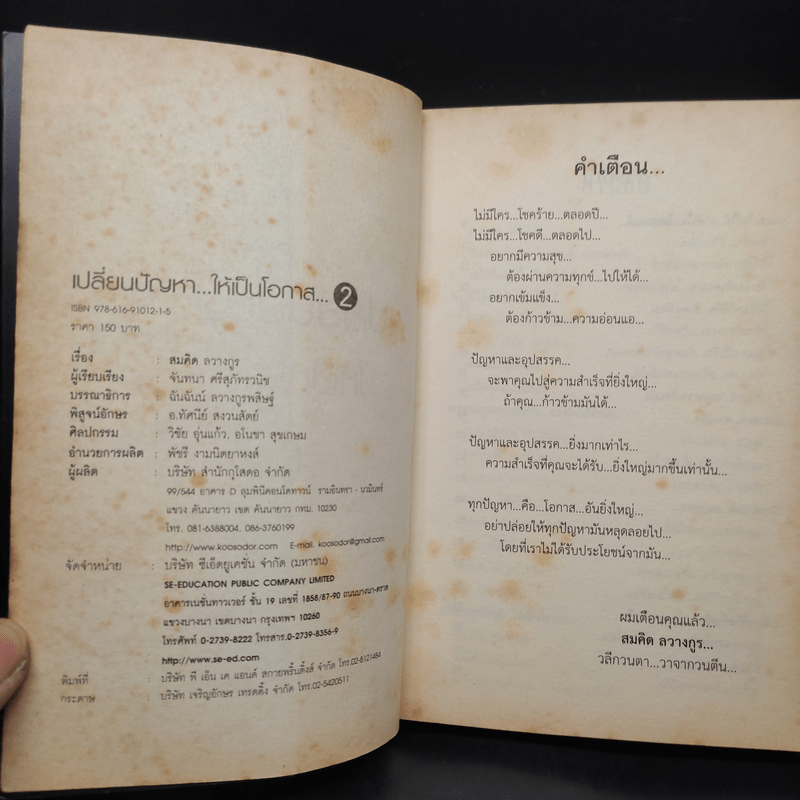 เปลี่ยนปัญหา...ให้เป็นโอกาส... 2
ISBN 978-616-91012-1-5
ราคา 150 บาท
เรื่อง : สมคิด ลวางกูร
ผู้เรียบเรียง : จันทนา ศรีสุภัทรวนิช
บรรณาธิการ : ฉันฉันน์ ลวางกูรพสิษฐ์
พิสูจน์อักษร : อ.ทัศนีย์ สงวนสัตย์
ศิลปกรรม : วิชัย อุ่นแก้ว, อโนชา สุขเกษม
อำนวยการผลิต : พัชรี งามนิตยาหงส์
ผู้ผลิต : บริษัท สำนักกุโสดอ จำกัด
99/544 อาคาร D ลุมพินีคอนโดทาวน์ รามอินทรา - นวมินทร์
แขวง คันนายาว เขต คันนายาว กทม. 10230
โทร. 081-6388004, 086-3760199
http://www.koosodor.com E-mail. koosodor@gmail.com
จัดจำหน่าย : บริษัท ซีเอ็ดยูเคชั่น จำกัด (มหาชน)
SE-EDUCATION PUBLIC COMPANY LIMITED
อาคารเนชั่นทาวเวอร์ ชั้น 19 เลขที่ 1858/87-90 ถนนบางนา-ตราด
แขวงบางนา เขตบางนา กรุงเทพฯ 10260
โทรศัพท์ 0-2739-8222 โทรสาร.0-2739-8356-9
http://www.se-ed.com
พิมพ์ที่ : บริษัท พี เอ็น เค แอนด์ สกายพริ้นติ้งส์ จำกัด โทร.02-8121484
กระดาษ : บริษัท เจริญอักษร เทรดดิ้ง จำกัด โทร.02-5420511
คำเตือน...
ไม่มีใคร...โชคร้าย...ตลอดปี...
ไม่มีใคร...โชคดี...ตลอดไป...
อยากมีความสุข...
ต้องผ่านความทุกข์...ไปให้ได้...
อยากเข้มแข็ง...
ต้องก้าวข้าม...ความอ่อนแอ...
ปัญหาและอุปสรรค...
จะพาคุณไปสู่ความสำเร็จที่ยิ่งใหญ่...
ถ้าคุณ...ก้าวข้ามมันได้...
ปัญหาและอุปสรรค...ยิ่งมากเท่าไร...
ความสำเร็จที่คุณจะได้รับ...ยิ่งใหญ่มากขึ้นเท่านั้น...
ทุกปัญหา...คือ...โอกาส...อันยิ่งใหญ่...
อย่าปล่อยให้ทุกปัญหามันหลุดลอยไป...
โดยที่เราไม่ได้รับประโยชน์จากมัน...
ผมเตือนคุณแล้ว...
สมคิด ลวางกูร...
วลีกวนตา...วาจากวนตีน...